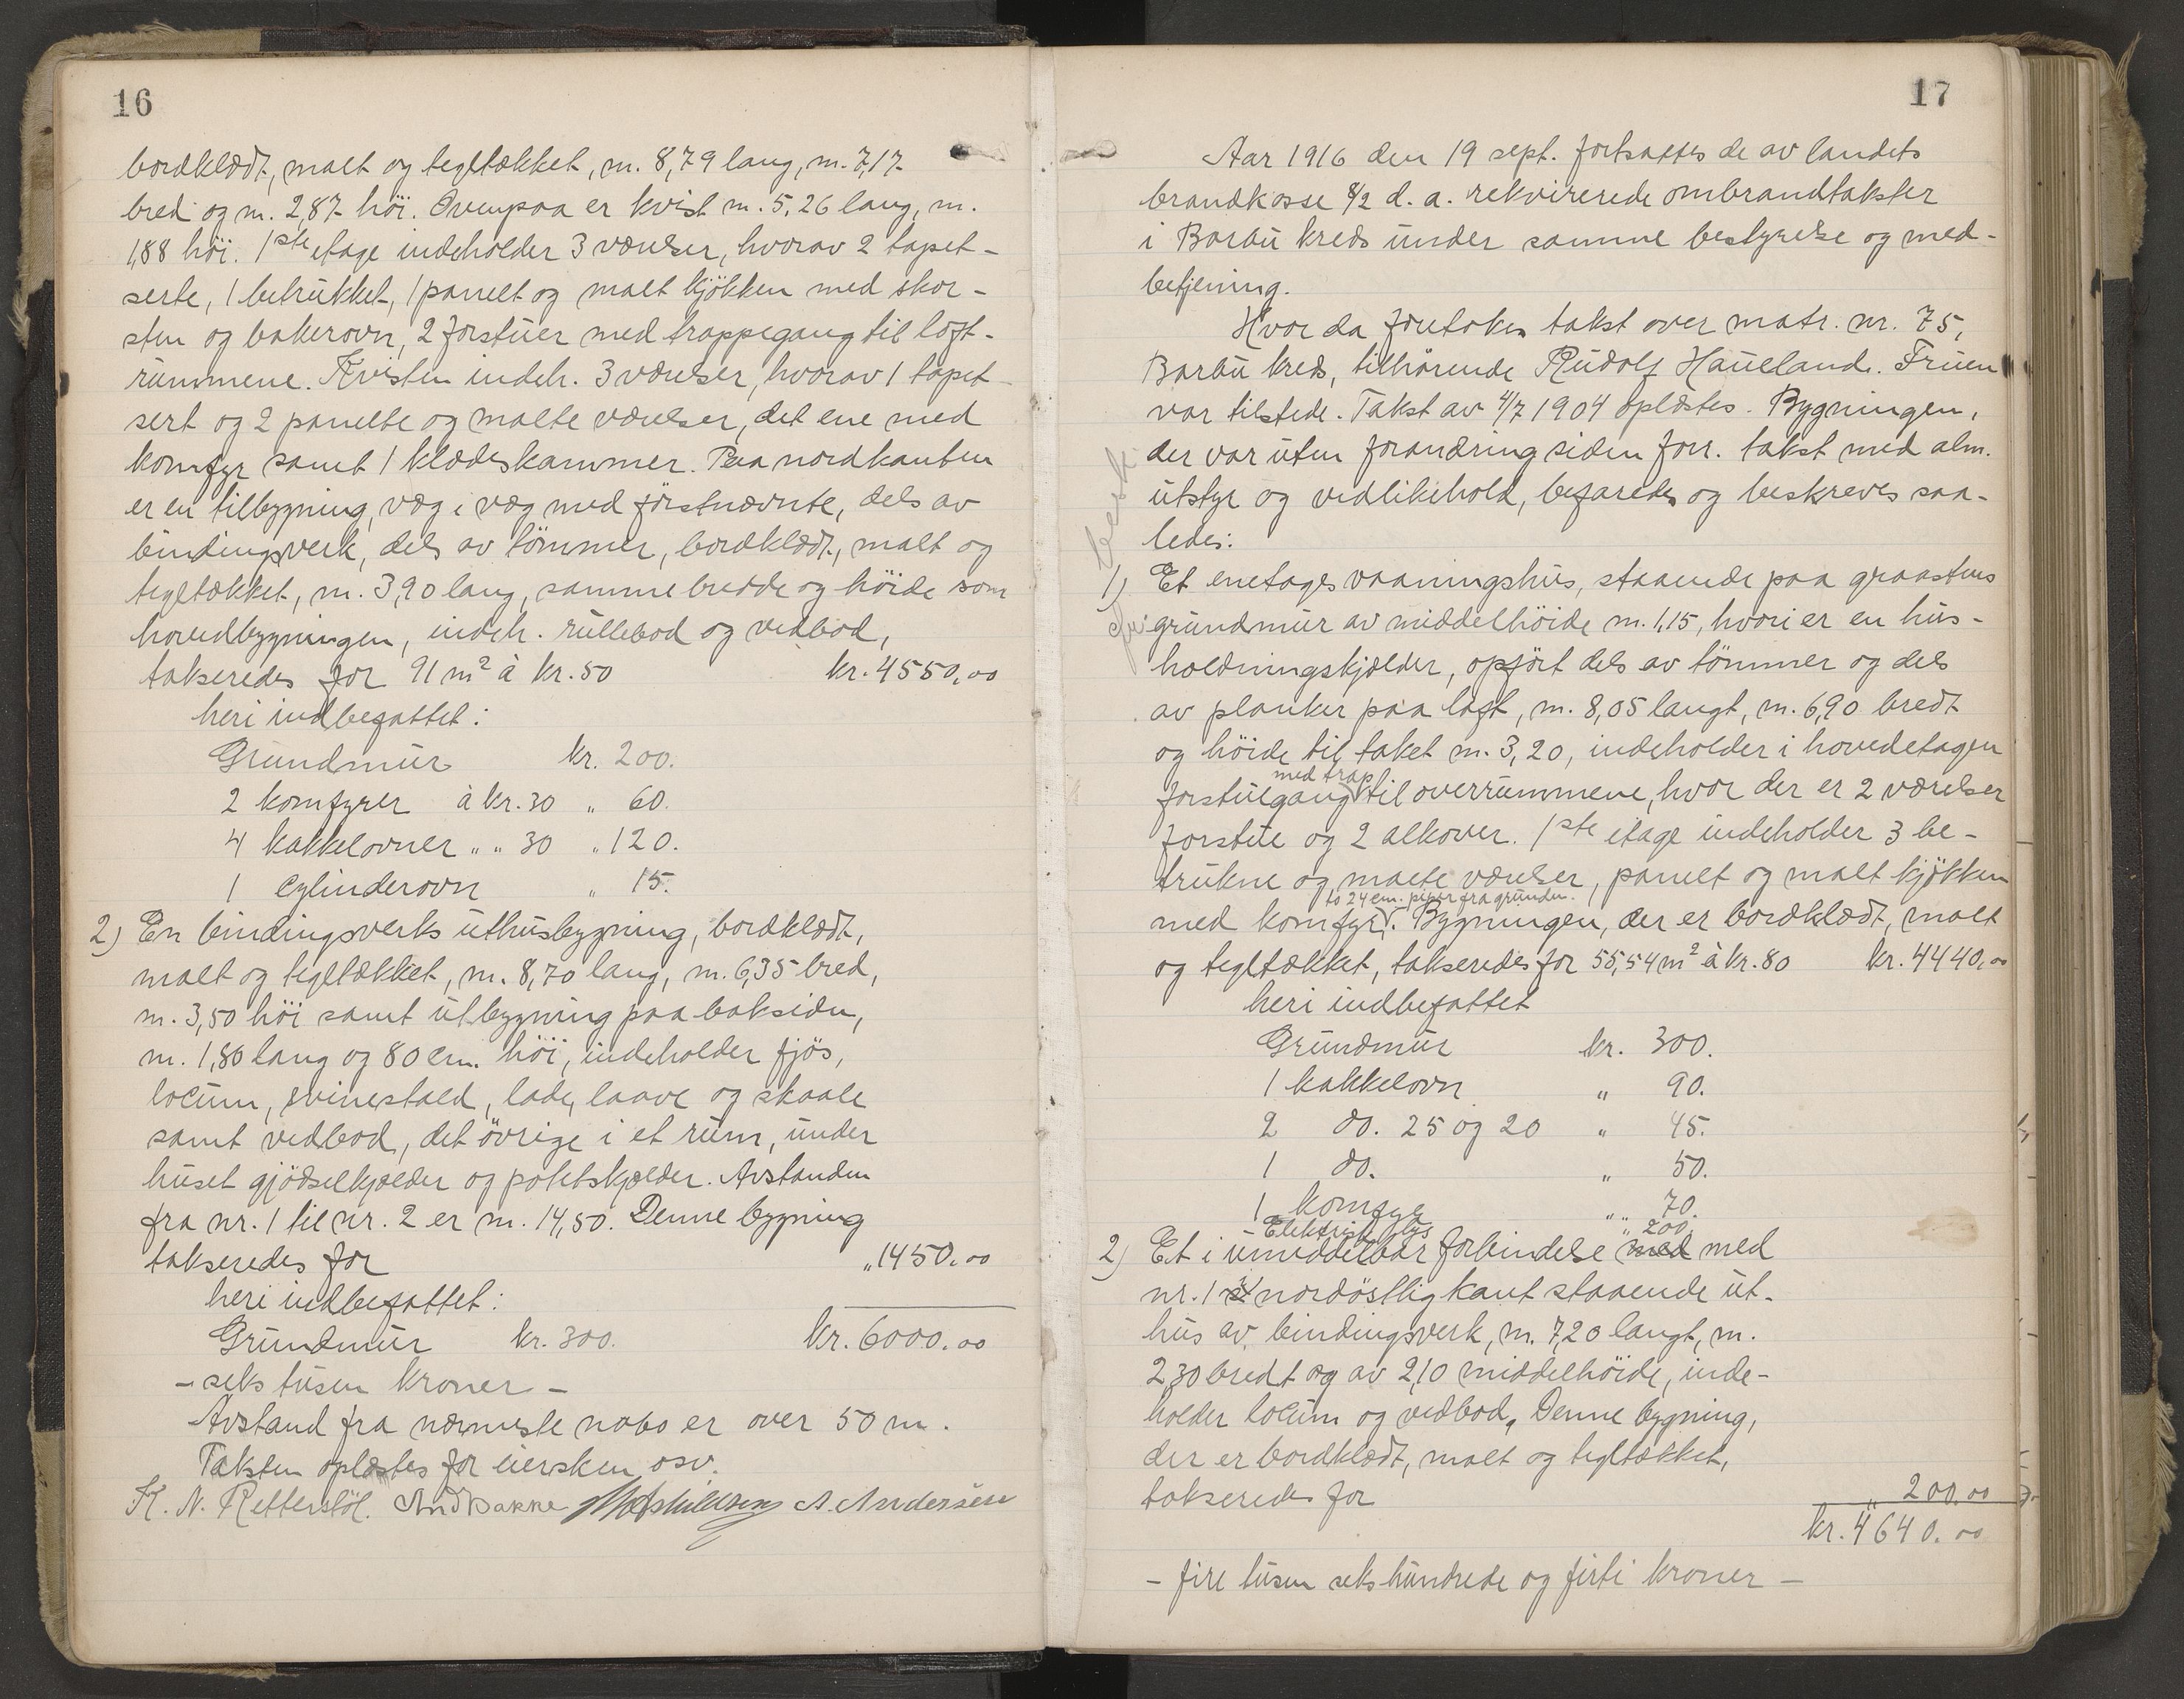 16
bordklædt, malt og tegltækket, m. 8,79 lang, m. 7,17
bred og m. 2,87 höi. Ovenpaa er kvist m. 5,26 lang, m.
1,88 höi. 1ste etage indeholder 3 værelser, hvorav 2 tapet-
serte, 1 betrukket, 1 panelt og malt kjökken med skor-
sten og bakerovn, 2 forstuer med trappegang til loft-
rummene. Kvisten indeh. 3 værelser, hvorav 1 tapet-
sert og 2 panelte og malte værelser, det ene med
komfyr samt 1 klædeskammer. Paa nordkanten
er en tilbygning, væg i væg med förstnævnte, dels av
bindingsverk, dels av tömmer, bordklædt, malt og
tegltækket, m. 3,90 lang, samme bredde og höide som
hovedbygningen, indeh. rullebod og vedbod,
takseredes for 91 m² à kr. 50 kr. 4550,00
heri indbefattet:
Grundmur kr. 200.
2 komfyrer à kr. 30 " 60.
4 kakkelovner " " 30 " 120.
1 Cylinderovn " 15.
2) En bindingsverks uthusbygning, bordklædt,
malt og tegltækket, m. 8,70 lang, m. 6,35 bred,
m. 3,50 höi samt utbygning paa baksiden,
m. 1,80 lang og 80 cm. höi, indeholder fjös,
locum, svinestald, lade, laave og skaale
samt vedbod, det övrige i et rum, under
huset gjödselkjælder og potetskjælder. Avstanden
fra nr. 1 til nr. 2 er m. 14,50. Denne bygning
takseredes for " 1450.00
heri indbefattet:
Grundmur kr. 300. kr. 6000.00
- seks tusen kroner -
Avstand fra nærmeste nabo er over 50 m.
Taksten oplæstes for eiersken osv.
K. N. Retterstöl. A. Andersen
17
Aar 1916 den 19 sept. fortsattes de av landets
brandkasse 8/2 d. a. rekvirerede ombrandtakster
i Barbu kreds under samme bestyrelse og med-
betjening.
Hvor da foretokes takst over matr. nr. 75,
Barbu kreds, tilhörende Rudolf Haueland. Fruen
var tilstede. Takst av 4/7 1904 oplæstes. Bygningen,
der var uten forandring siden forr. takst med alm.
utstyr og vedlikehold, befaredes og beskreves saa-
ledes:
1) Et enetages vaaningshus, staaende paa graastens
grundmur av middelhöide m. 1,15, hvori er en hus-
holdningskjælder, opfört dels av tömmer og dels
av planker paa laft, m. 8,05 langt, m. 6,90 bredt
og höide til taket m. 3,20, indeholder i hovedetagen
med trap
forstuegang til overrummene, hvor der er 2 værelser
forstue og 2 alkover. 1ste etage indeholder 3 be-
trukne og malte værelser, panelt og malt kjökken
to 24 cm. piper fra grunden.
med komfyr. Bygningen, der er bordklædt, malt
og tegltækket, takseredes for 55,54 m² à kr. 80 kr. 4440,00
heri indbefattet
Grundmur kr. 300.
1 kakkelovn " 90.
2 do. 25 og 20 " 45.
1 do. " 50.
1 komfyr " 70.
Elektrisk lys " 200.
2) Et i umiddelbar forbindelse med med
nr. 1 nordöstlig kant staaende ut-
hus av bindingsverk, m. 7,20 langt, m.
2,30 bredt og av 2,10 middelhöide, inde-
holder locum og vedbod. Denne bygning,
der er bordklædt, malt og tegltækket,
takseredes for " 200.00
kr. 4640.00
- fire tusen seks hundrede og firti kroner -